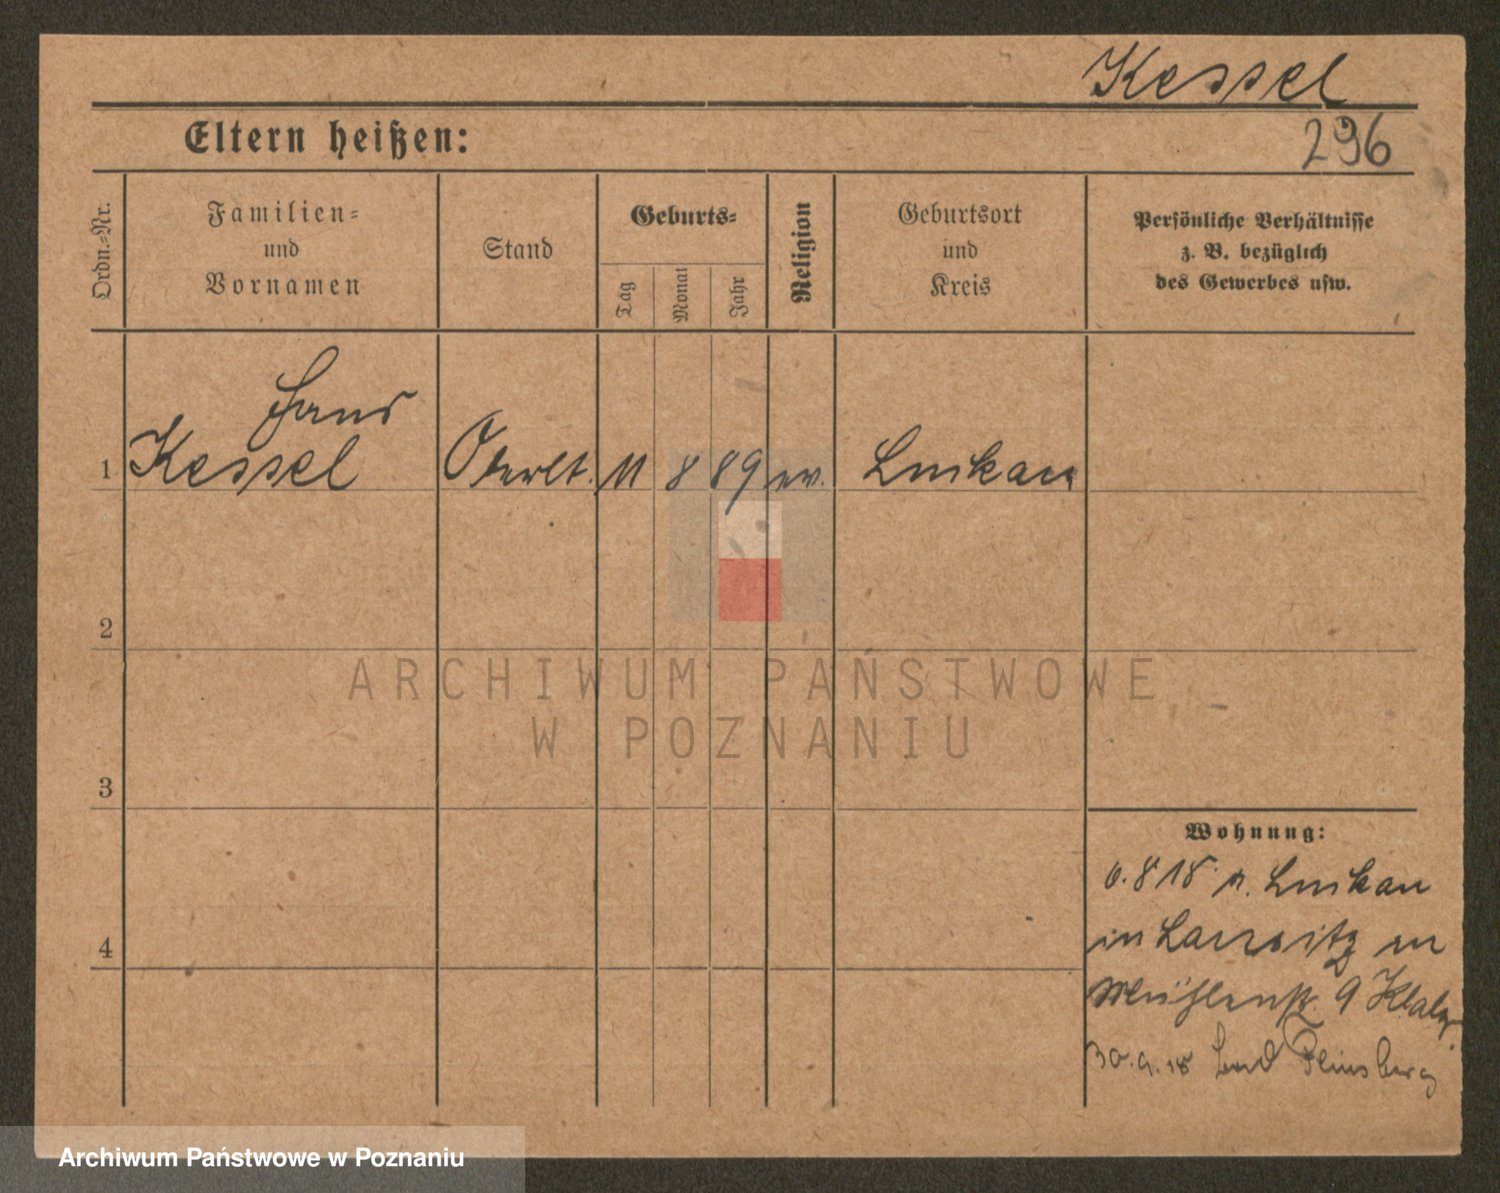 Kessel
Eltern heißen:
296
Ordn.-Nr.
Familien-
und
Vornamen
Stand
Geburts-
Tag
Monat
Jahr
Religion
Geburtsort
und
Kreis
Persönliche Verhältnisse
z. B. bezüglich
des Gewerbes usw.
Hans
1 Kessel Oberlt. 11 8 89 ev.
2
ARCHIWUM PAŃSTWOWE
W POZNANIU
3
Wohnung:
6.8 18
in
4
Mühlenstr. 9
30.9.18 Bad Flinsberg
Archiwum Państwowe w Poznaniu